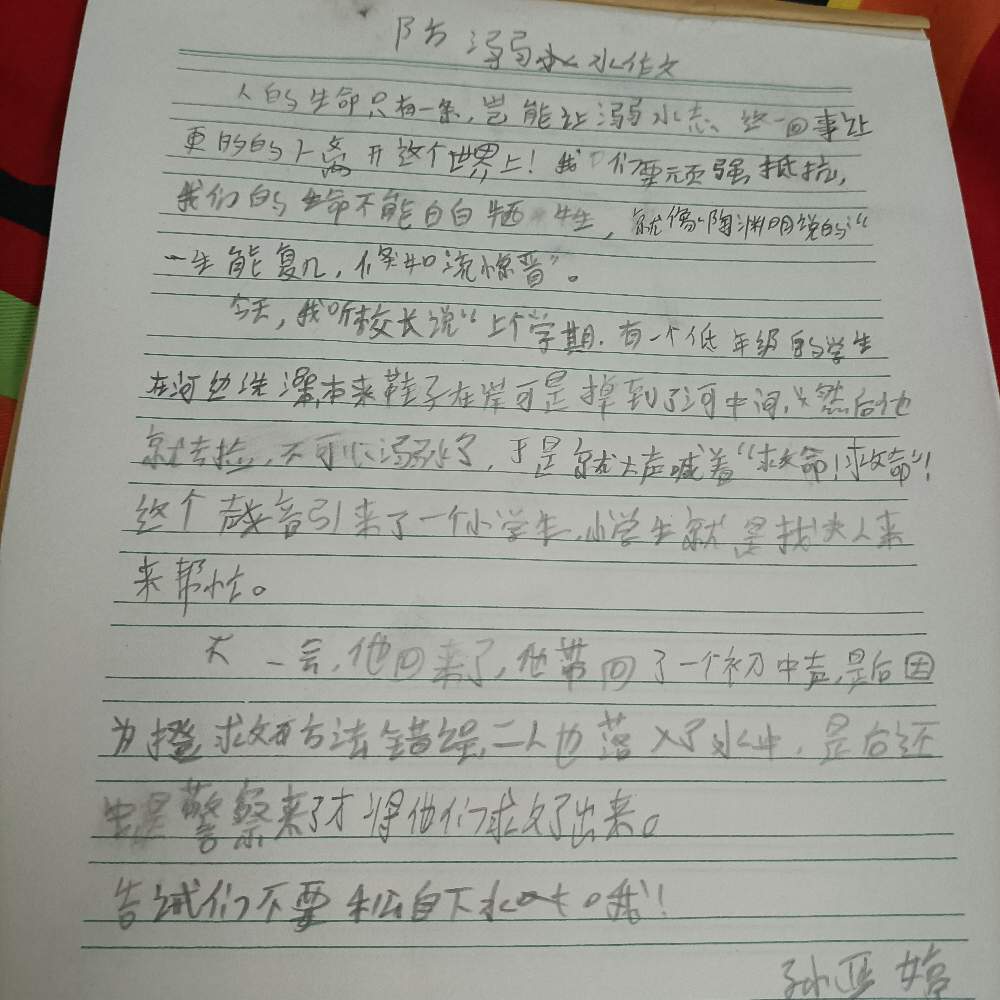 防溺水水作文
人的生命只有一条,岂能让溺水志、终一回事让
更的的人离开这个世界上!我们要顽强抵抗,
我们的生命不能白白牺牲,就像“陶渊明说的“
一生能复几,倏如流惊晋”。
今天,我听校长说“上个学期.有一个低年级的学生
在河边洗澡,本来鞋子在岸可是掉到了河中间,然后他
就去捡,不可心溺水了,于是就大声喊着“求救命!求救命”!
终个声音引来了一个小学生,小学生就是找大人来
来帮忙。
不一会,他回来了,他带回了一个初中声,是后因
为求救方法错误,二人也落入了水中,是后还
是警察来了才将他们求救了出来。
告诫们不要私自下水哦!
孙亚婷